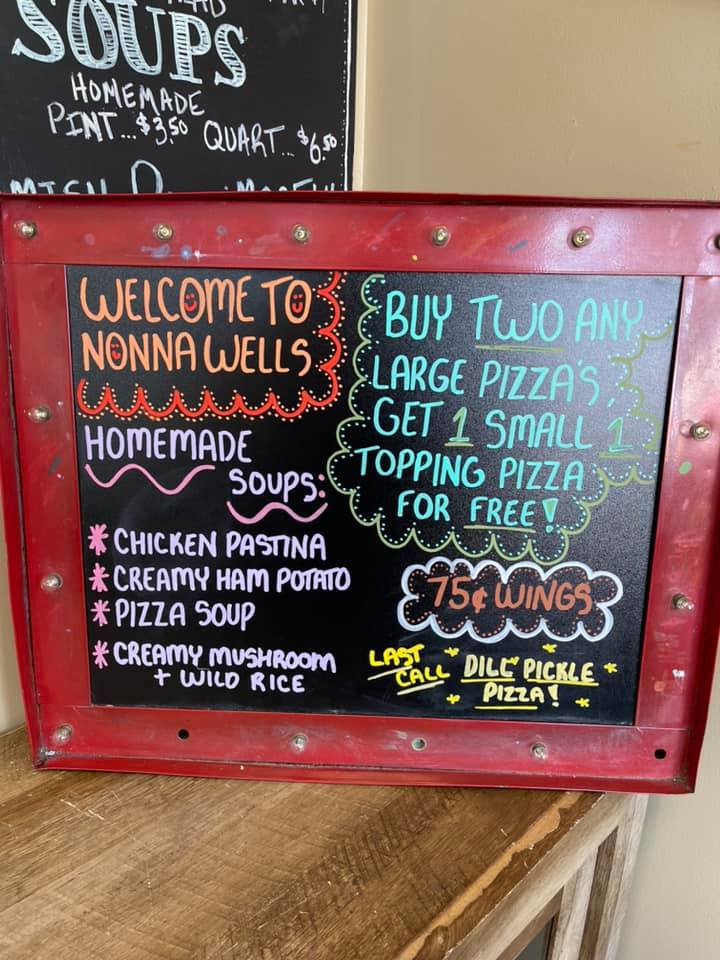 SOUPS
HOMEMADE
PINT...$3.50 QUART...$6.50
WELCOME TO
NONNA WELLS
HOMEMADE
SOUPS:
* CHICKEN PASTINA
* CREAMY HAM POTATO
* PIZZA SOUP
* CREAMY MUSHROOM
+ WILD RICE
BUY TWO ANY
LARGE PIZZA'S,
GET 1 SMALL 1
TOPPING PIZZA
FOR FREE!
75¢ WINGS
LAST
CALL
DILL PICKLE
PIZZA!